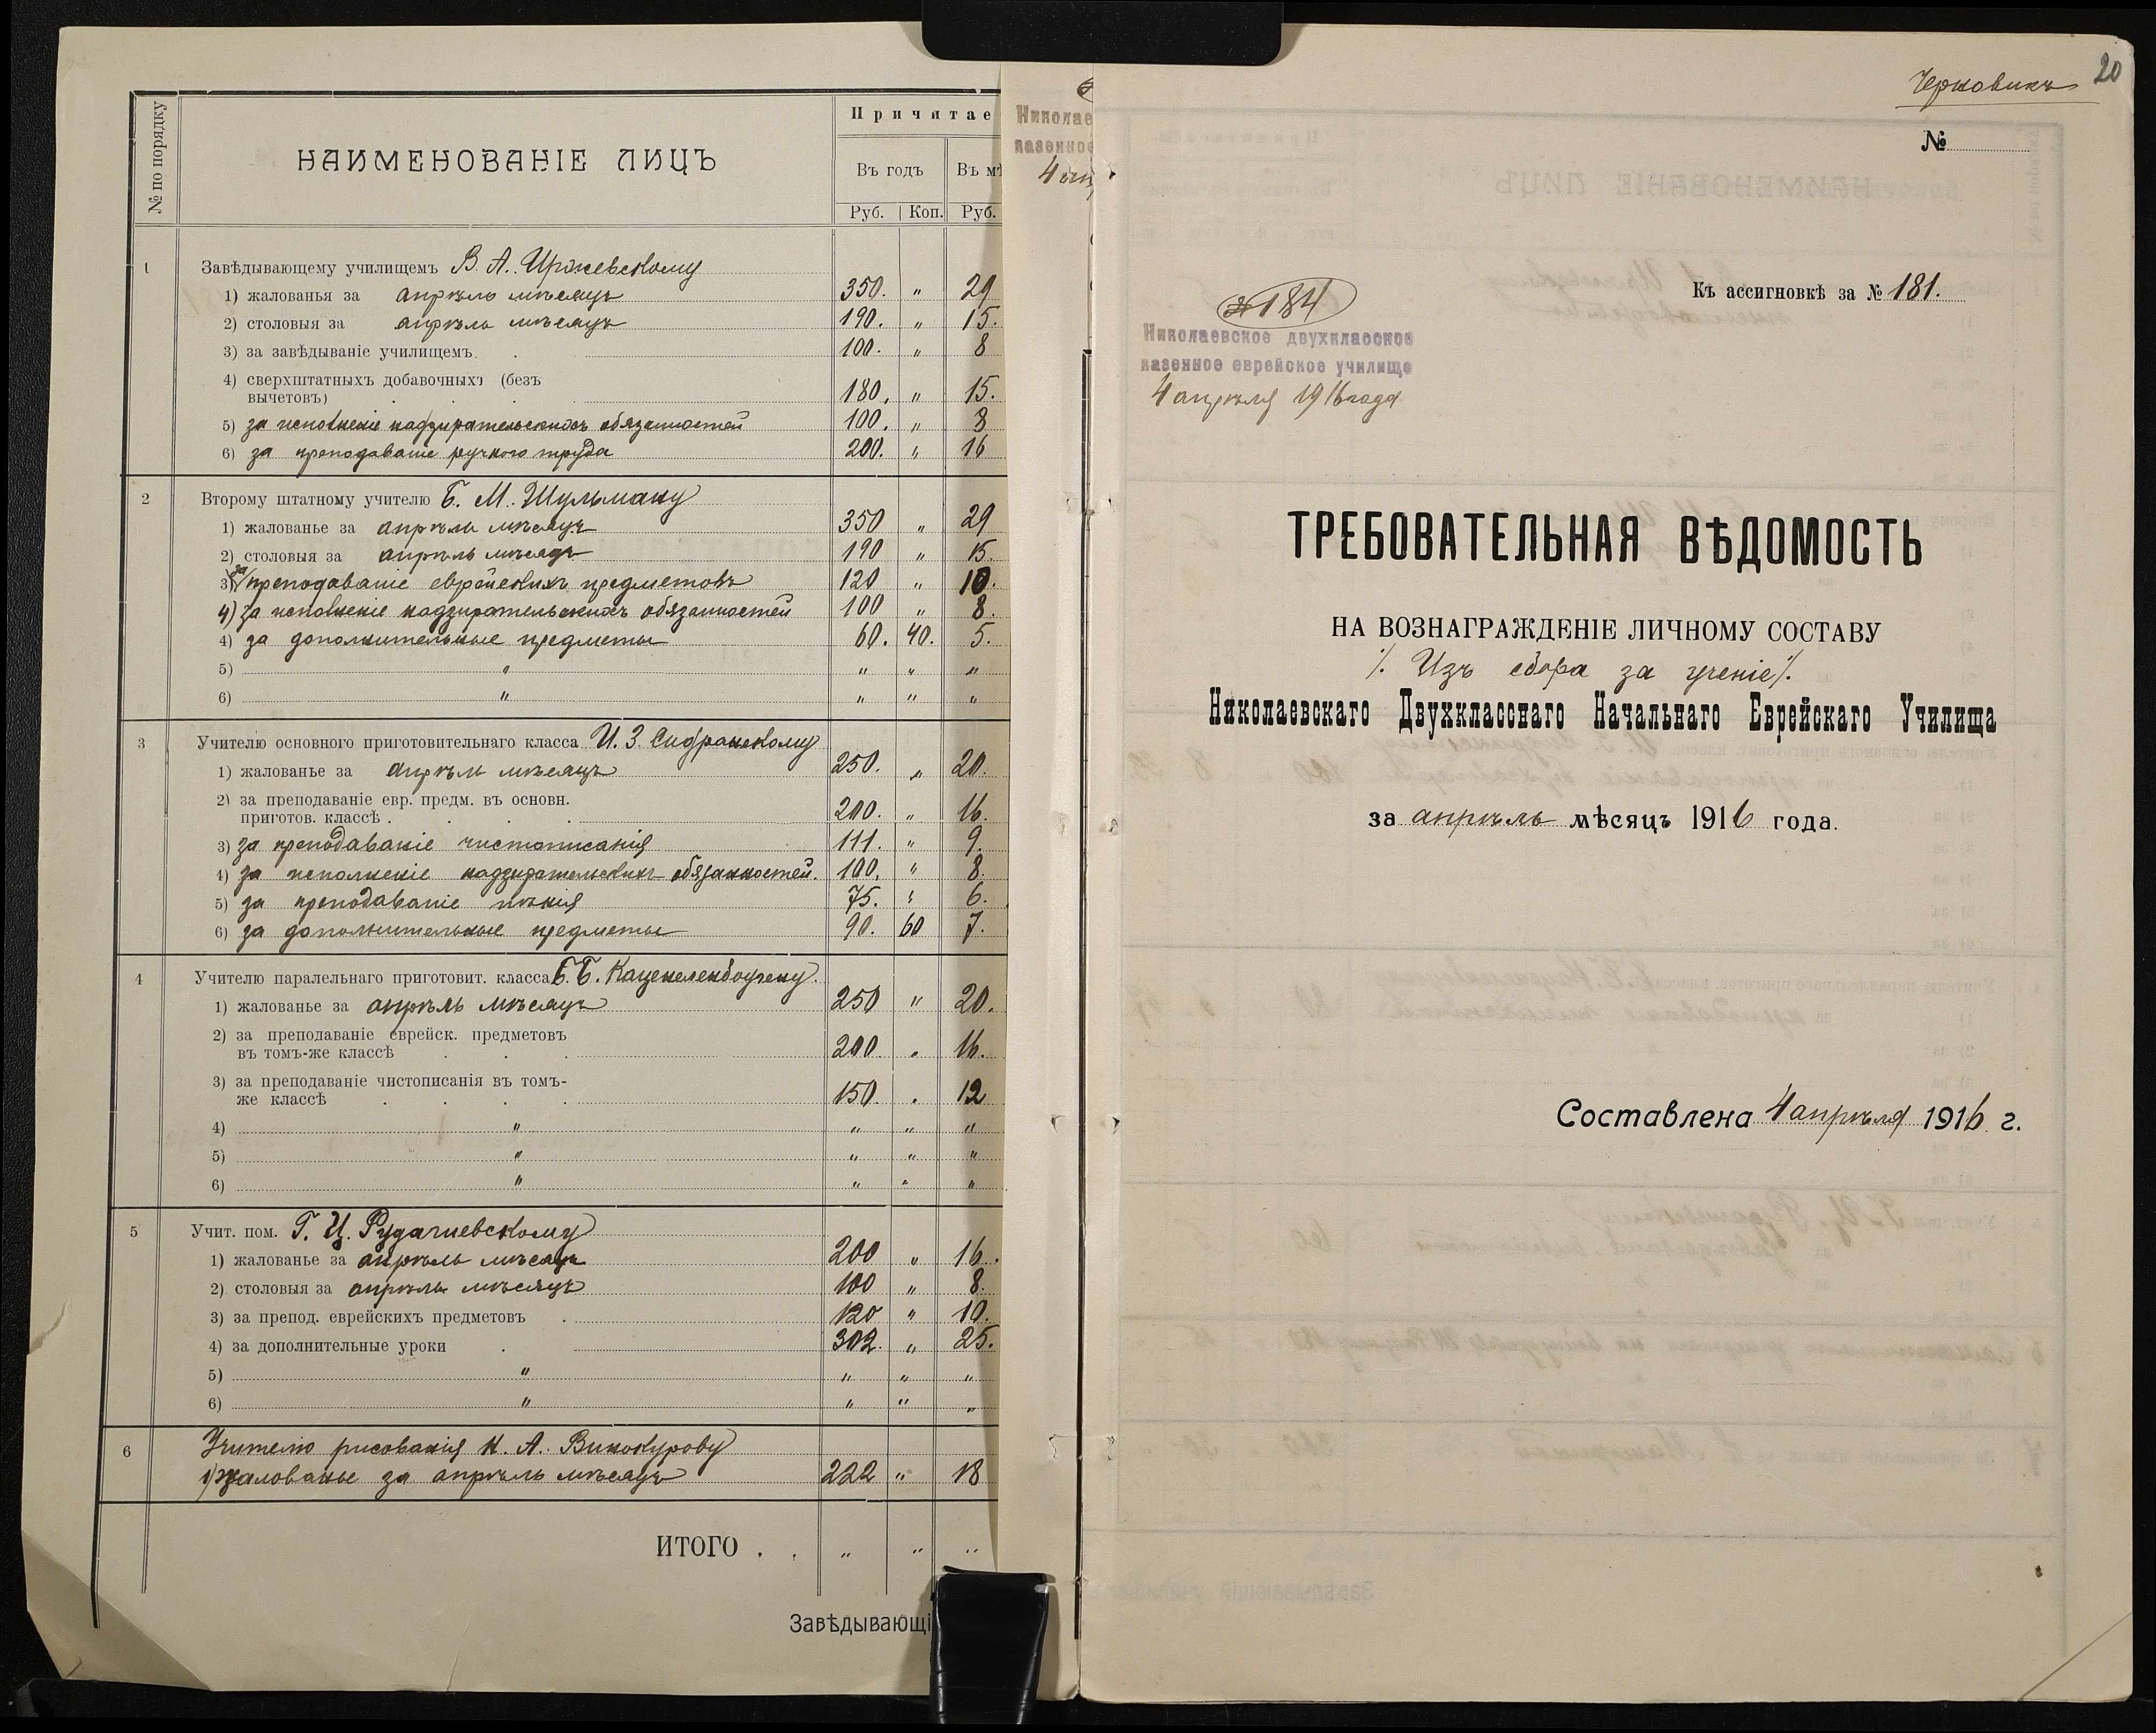 № по порядку
НАИМЕНОВАНІЕ ЛИЦЪ
Причитае
Въ годъ
Въ мѣ
Руб. Коп. Руб.
1 Завѣдывающему училищемъ В. А. Иржевскому
1) жалованья за апрѣль мѣсяцъ 350. " 29
2) столовыя за апрѣль мѣсяцъ 190. " 15.
3) за завѣдываніе училищемъ. 100. " 8
4) сверхштатныхъ добавочныхъ (безъ
вычетовъ) 180. " 15.
5) за исполненіе надзирательскихъ обязанностей 100. " 8
6) за преподаваніе ручного труда 200. " 16
2 Второму штатному учителю Б. М. Шульману
1) жалованье за апрѣль мѣсяцъ 350 " 29
2) столовыя за апрѣль мѣсяцъ 190 " 15.
3) за преподаваніе еврейскихъ предметовъ 120 " 10.
4) за исполненіе надзирательскихъ обязанностей 100 " 8.
4) за дополнительные предметы 60. 40. 5.
5) " " " "
6) " " " "
3 Учителю основного приготовительнаго класса И. З. Сидранскому
1) жалованье за апрѣль мѣсяцъ 250. " 20.
2) за преподаваніе евр. предм. въ основн.
приготов. классѣ . 200. " 16.
3) за преподаваніе чистописанія 111. " 9.
4) за исполненіе надзирательскихъ обязанностей. 100. " 8.
5) за преподаваніе пѣнія 75. " 6.
6) за дополнительные предметы 90. 60 7.
4 Учителю паралельнаго приготовит. класса Б. Б. Каценеленбогену.
1) жалованье за апрѣль мѣсяцъ 250 " 20.
2) за преподаваніе еврейск. предметовъ
въ томъ-же классѣ 200. " 16.
3) за преподаваніе чистописанія въ томъ-
же классѣ 150. " 12
4) " " " "
5) " " " "
6) " " " "
5 Учит. пом. Г. Ц. Рудачиевскому
1) жалованье за апрѣль мѣсяцъ 200 " 16.
2) столовыя за апрѣль мѣсяцъ 100 " 8.
3) за препод. еврейскихъ предметовъ 120 " 10.
4) за дополнительные уроки 302. " 25.
5) " " " "
6) " " " "
6 Учителю рисованія К. А. Винокурову
1) жалованье за апрѣль мѣсяцъ 222 " 18
ИТОГО . . " " "
Завѣдывающі
Николае
казенное
Черновикъ
20
№
Къ ассигновкѣ за № 181.
№ 184
Николаевское двухклассное
казенное еврейское училище
4 апрѣля 1916 года
ТРЕБОВАТЕЛЬНАЯ ВѢДОМОСТЬ
НА ВОЗНАГРАЖДЕНІЕ ЛИЧНОМУ СОСТАВУ
/. Изъ сбора за ученіе/.
Николаевскаго Двухкласснаго Начальнаго Еврейскаго Училища
за апрѣль мѣсяцъ 1916 года.
Составлена 4 апрѣля 1916 г.